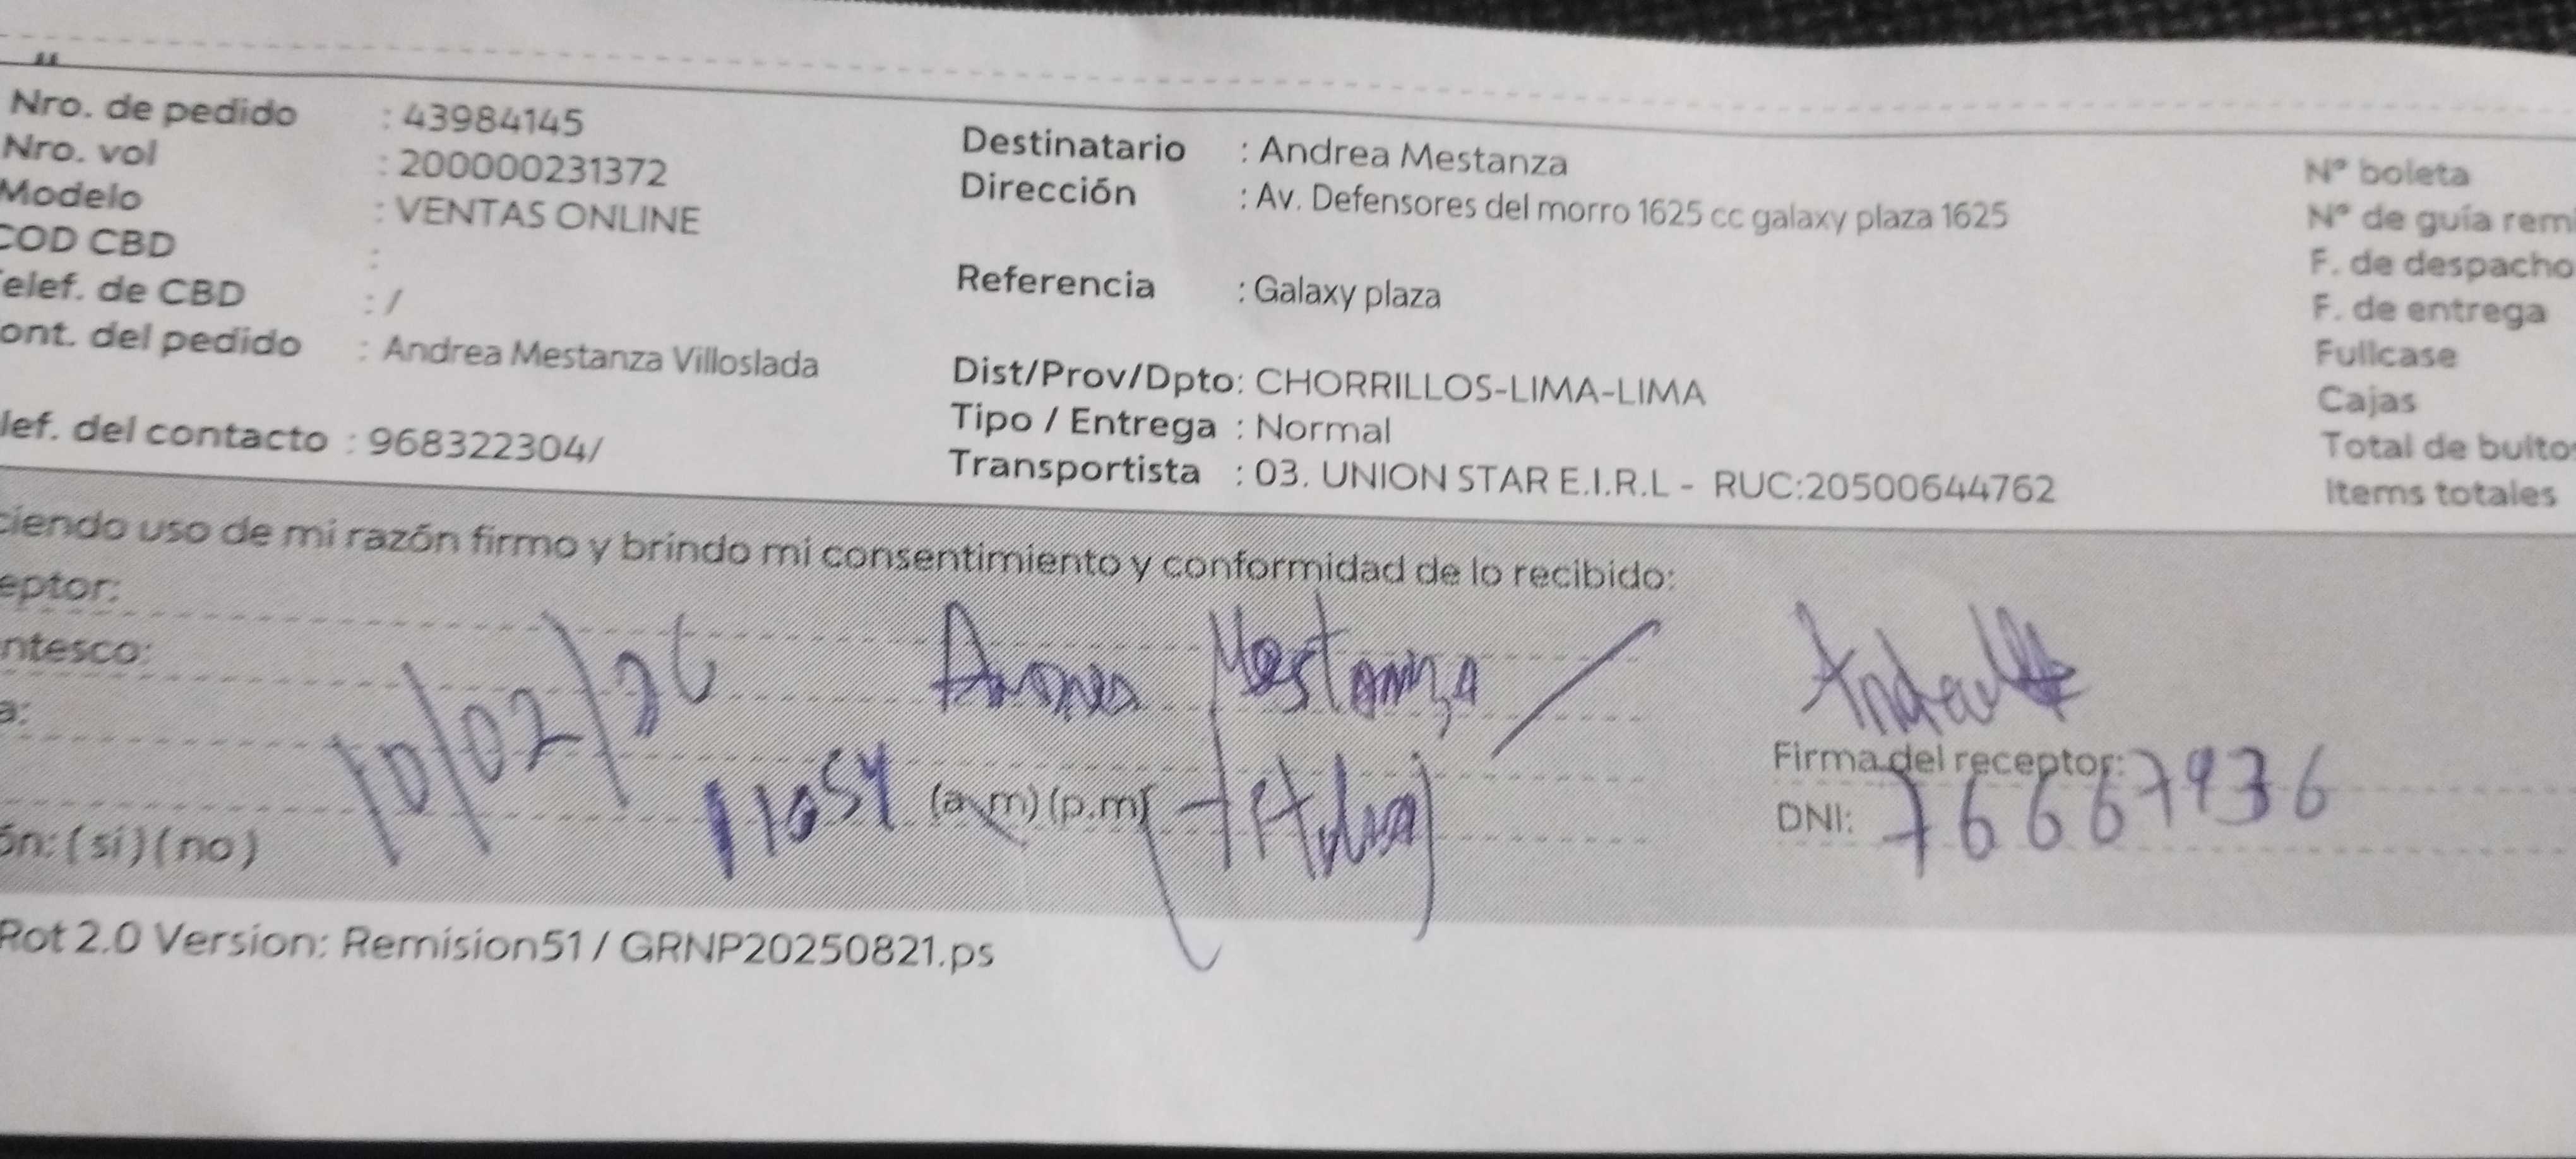 Nro. de pedido : 43984145
Nro. vol : 200000231372
Modelo : VENTAS ONLINE
COD CBD :
elef. de CBD : /
ont. del pedido : Andrea Mestanza Villoslada
lef. del contacto : 968322304/
Destinatario : Andrea Mestanza
Dirección : Av. Defensores del morro 1625 cc galaxy plaza 1625
Referencia : Galaxy plaza
Dist/Prov/Dpto: CHORRILLOS-LIMA-LIMA
Tipo / Entrega : Normal
Transportista : 03. UNION STAR E.I.R.L - RUC:20500644762
Nº boleta
Nº de guía rem
F. de despacho
F. de entrega
Fullcase
Cajas
Total de bulto
Items totales
ciendo uso de mi razón firmo y brindo mi consentimiento y conformidad de lo recibido:
eptor:
ntesco:
a:
ón: (si) (no)
10/02/26
Andrea Mestanza
(a.m) (p.m)
(Titular)
Firma del receptor:
DNI: 76667936
Rot 2.0 Version: Remision51 / GRNP20250821.ps